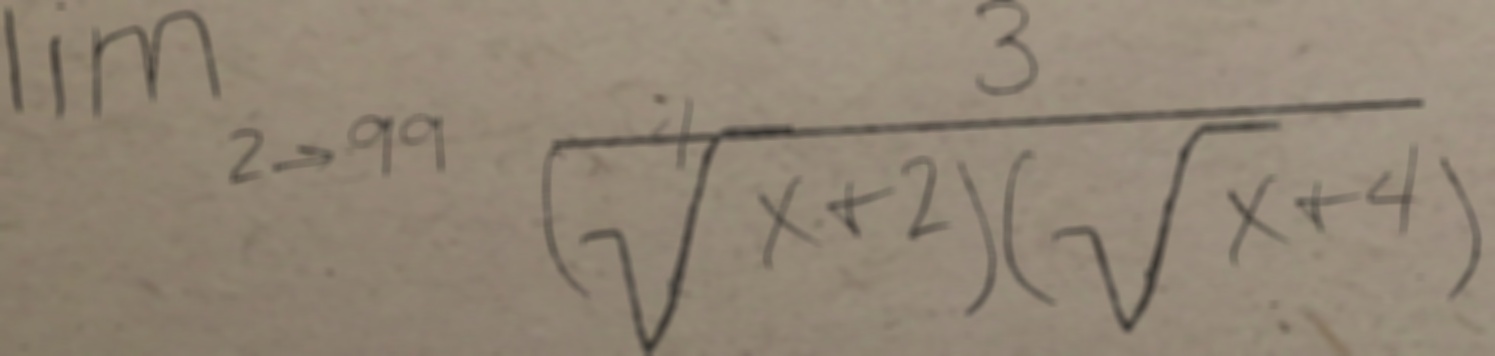 lim_{2→99} \frac{3}{(\sqrt[4]{x+2})(\sqrt{x+4})}